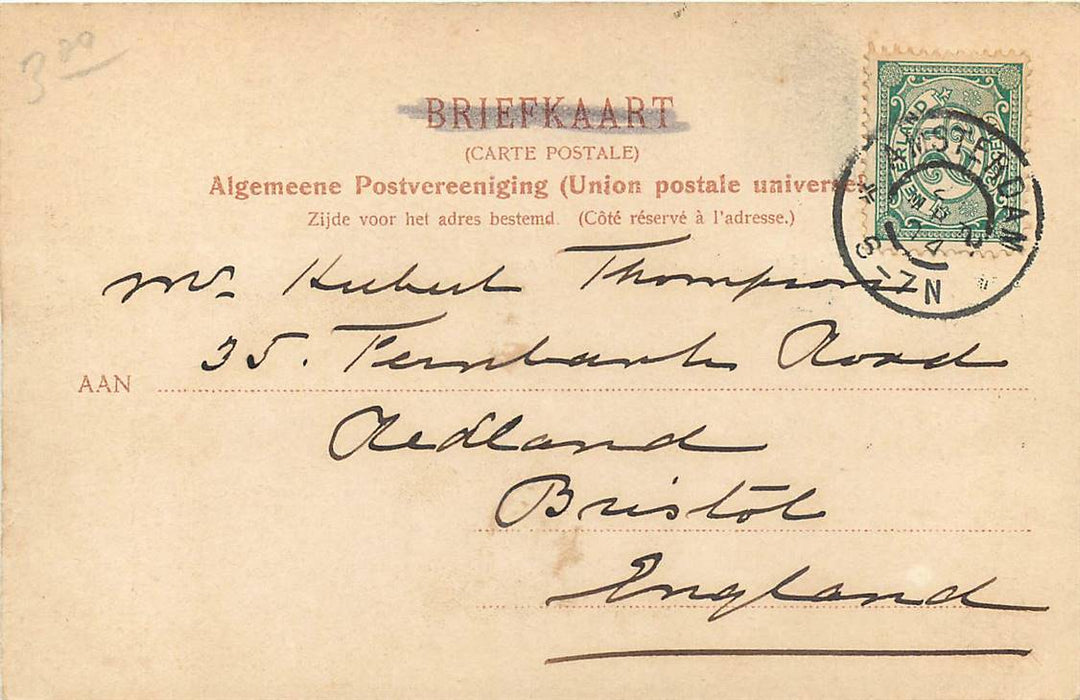 3 20
BRIEFKAART
(CARTE POSTALE)
Algemeene Postvereeniging (Union postale universe
Zijde voor het adres bestemd. (Côté réservé à l'adresse.)
NEDERLAND
AMSTERDAM
Mr. Hubert Thompson
35. Fernbank Road
AAN
Redland
Bristol
England